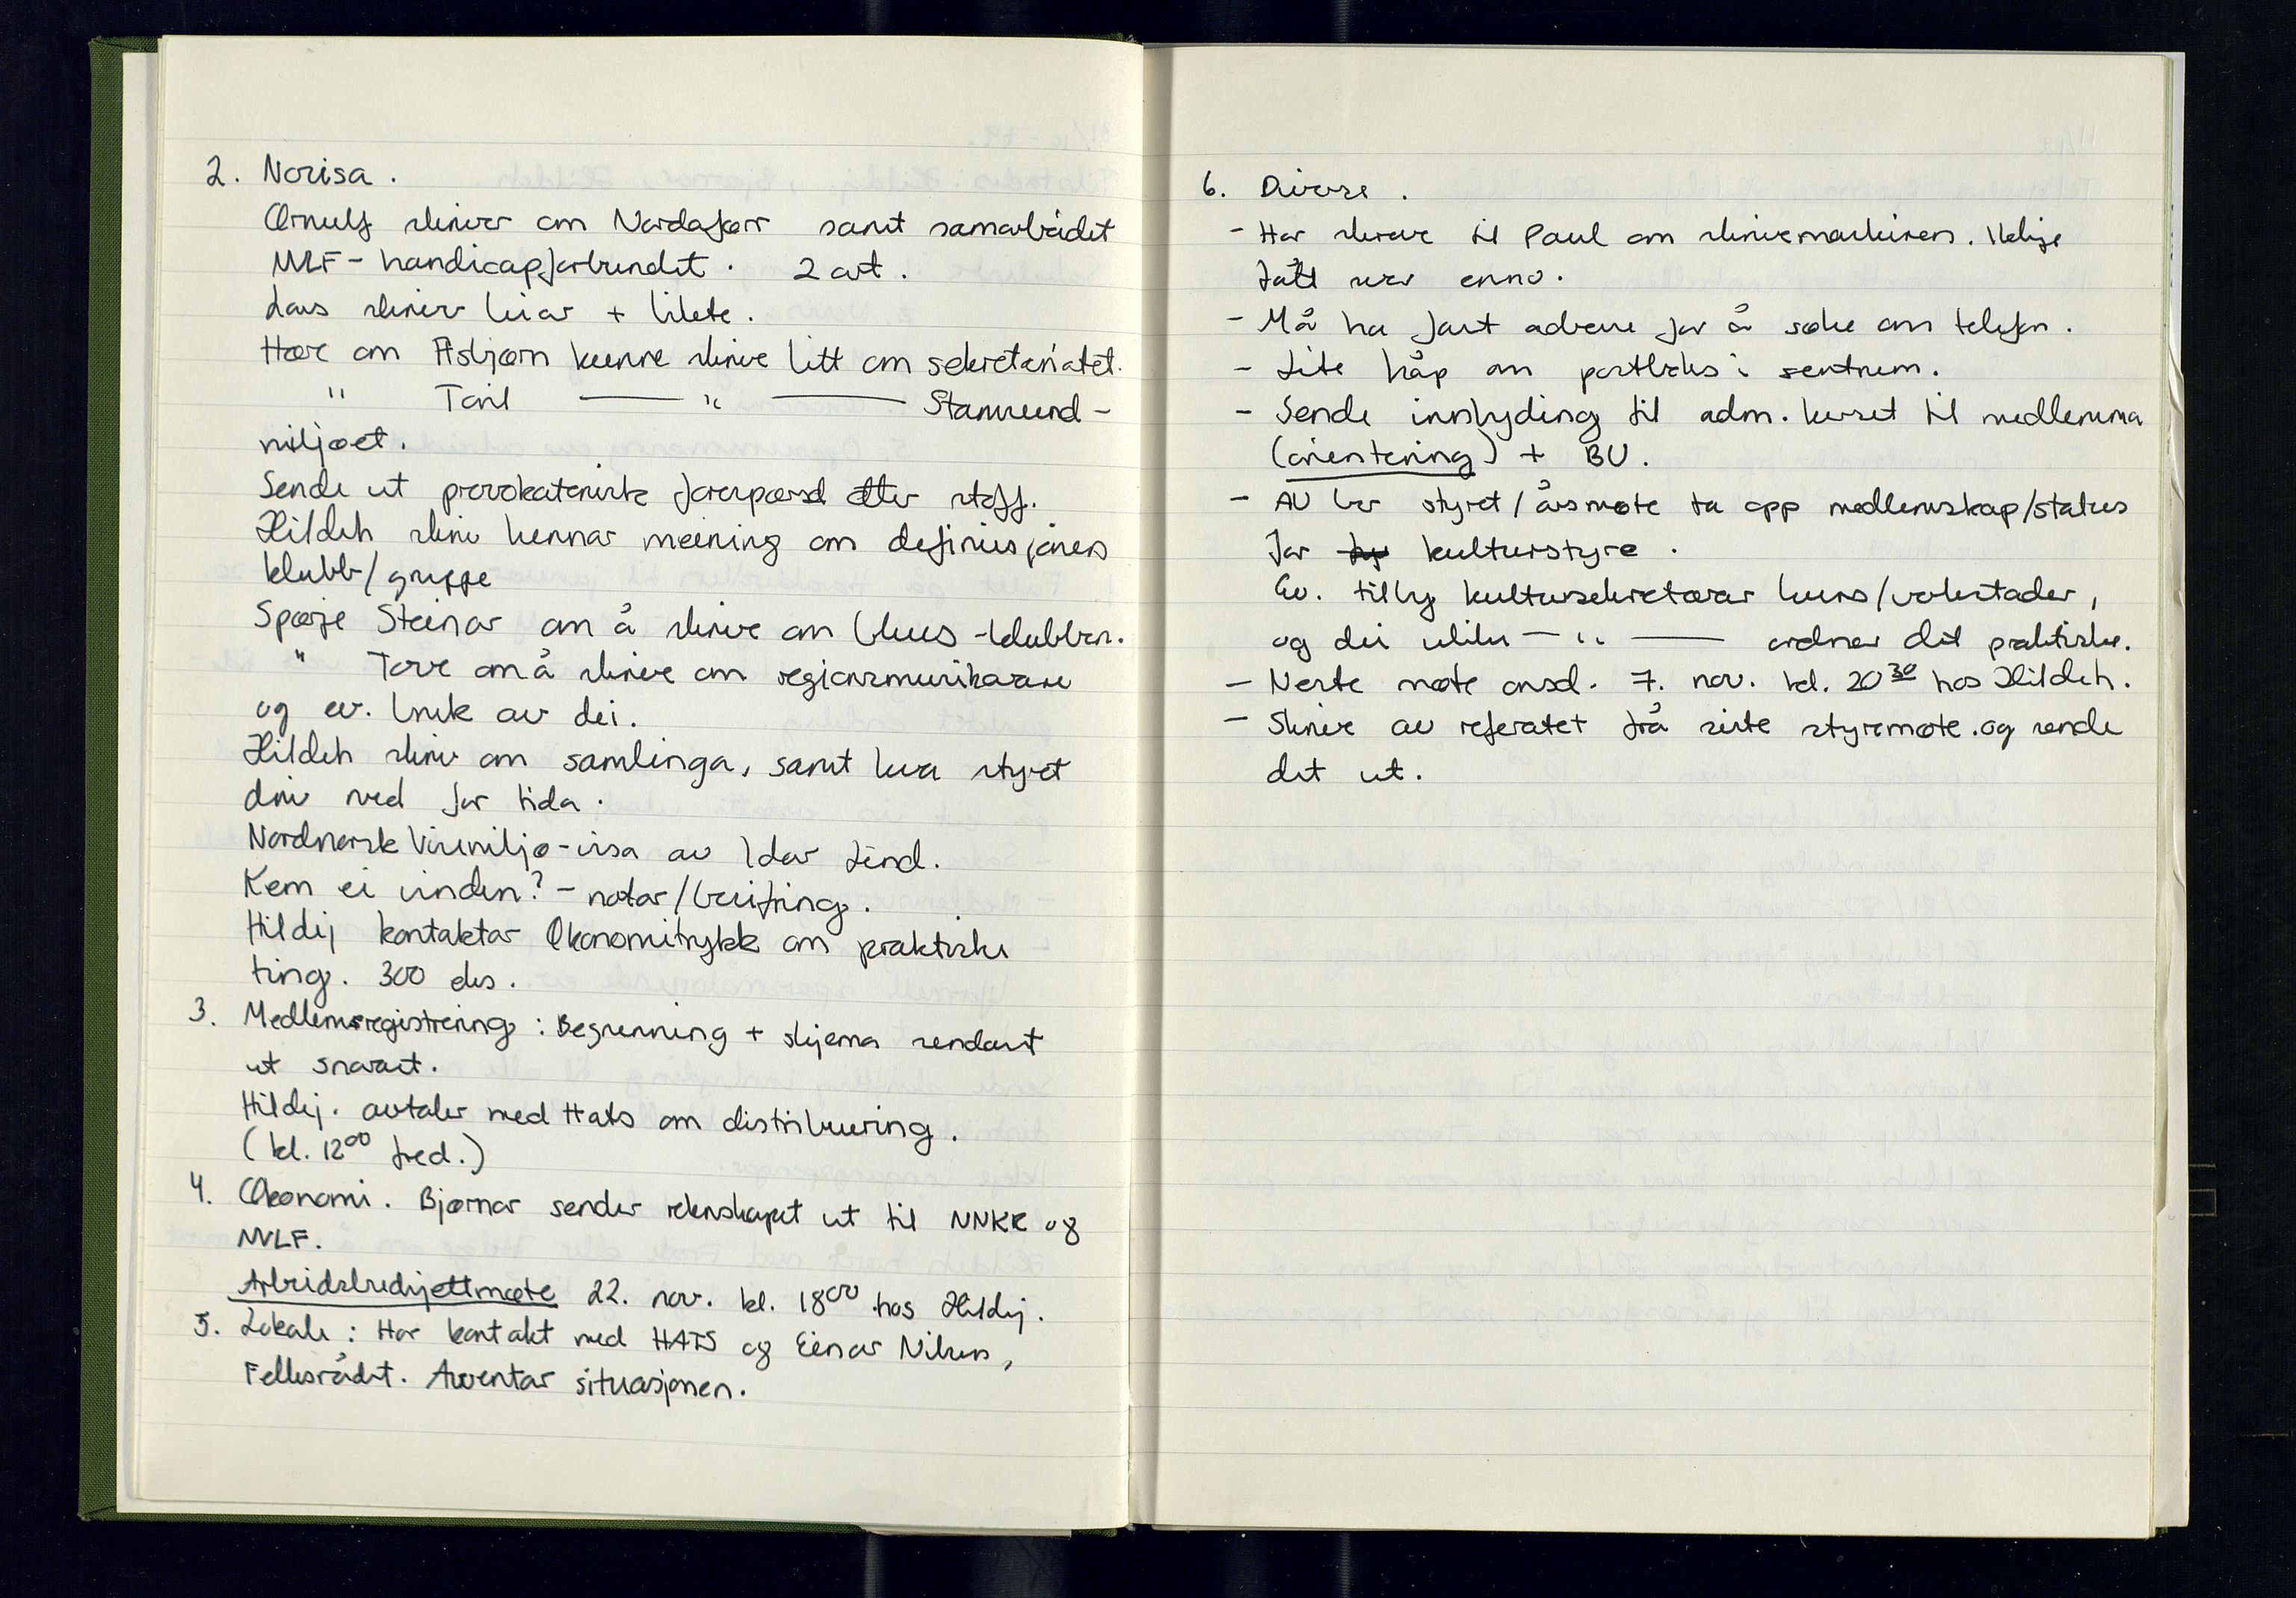 2. Norisa.
Ørnulf skriver om Nordafor samt samarbeidet
NVLF - handicapforbundet. 2 art.
Lars skriver leiar + bilete.
Høre om Asbjørn kunne skrive litt om sekretariatet.
" Toril —— " —— Stamsund-
miljøet.
Sende ut provokatoriske forespørsel etter stoff.
Hildeh skriv hennar meining om definisjonen
klubb/gruppe
Spørje Steinar om å skrive om blues-klubben.
" Tore om å skrive om regionsmusikarane
og ev. bruk av dei.
Hildeh skriv om samlinga, samt kva styret
driv med for tida.
Nordnorsk Visemiljø-visa av Idar Lind.
Kem ei vinden? - notar/besifring.
Hildej kontaktar Økonomitrykk om praktiske
ting. 300 eks.
3. Medlemsregistrering: Begrunning + skjema sendast
ut snarast.
Hildej. avtaler med Hats om distribuering.
(kl. 12⁰⁰ fred.)
4. Økonomi. Bjørnar sender rekneskapet ut til NNKR og
NVLF.
Arbeidsbudsjettmøte 22. nov. kl. 18⁰⁰ hos Hildej.
5. Lokale: Har kontakt med HATS og Einar Nilsen,
Fellesrådet. Avventar situasjonen.
6. Diverse.
- Har skreve til Paul om skrivemaskinen. Ikkje
fått svar enno.
- Må ha fast adresse for å søke om telefon.
- Lite håp om postboks i sentrum.
- Sende innbyding til adm. kurset til medlemma
(orientering) + BU.
- AU ber styret/årsmøte ta opp medlemskap/status
for kulturstyre.
Ev. tilby kultursekretærar kurs/verkstader,
og dei —— " —— ordner det praktiske.
- Neste møte onsd. 7. nov. kl. 20³⁰ hos Hildeh.
- Skrive av referatet frå siste styremøte. og sende
det ut.